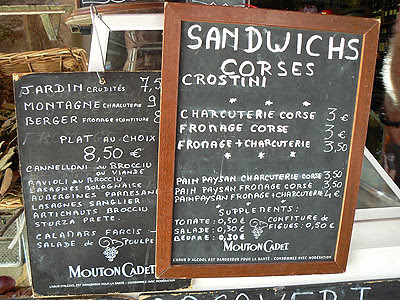 JARDIN CRUDITÉS 7,5
MONTAGNE CHARCUTERIE 9
BERGER FROMAGE+CONFITURE 8
PLAT AU CHOIX
8,50 €
CANNELLONI AU BROCCIU
OU VIANDE
RAVIOLI AU BROCCIU
LASAGNES BOLOGNAISE
AUBERGINES PARMESANE
LASAGNES SANGLIER
ARTICHAUTS BROCCIU
STURZA PRETE.
CALAMARS FARCIS
SALADE DE POULPE
MOUTON CADET
L'ABUS D'ALCOOL EST DANGEREUX POUR LA SANTÉ - CONSOMMEZ AVEC MODÉRATION
SANDWICHS
CORSES
CROSTINI
* * *
CHARCUTERIE CORSE 3 €
FROMAGE CORSE 3 €
FROMAGE + CHARCUTERIE 3,50
* * *
PAIN PAYSAN CHARCUTERIE CORSE 3,50
PAIN PAYSAN FROMAGE CORSE 3,50
PAIN PAYSAN FROMAGE + CHARCUTERIE 4 €
* SUPPLEMENTS: *
TOMATE : 0,50 € CONFITURE DE
SALADE : 0,30 € FIGUES : 0,50 €
BEURRE : 0,30 €
MOUTON CADET
L'ABUS D'ALCOOL EST DANGEREUX POUR LA SANTÉ - CONSOMMEZ AVEC MODÉRATION